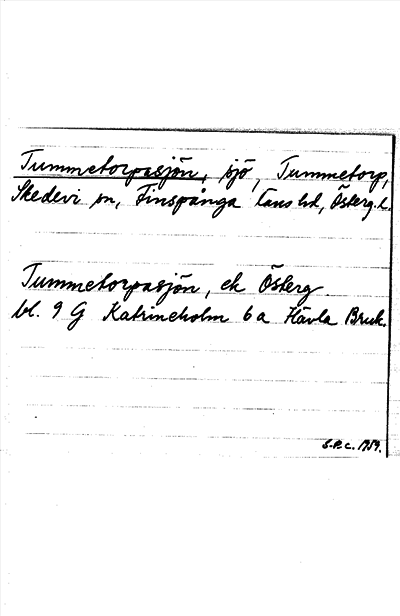 Tummetorpasjön, sjö, Tummetorp,
Skedevi sn, Finspånga läns hd, Österg. l.
Tummetorpasjön, ek Österg
bl. 9 G Katrineholm 6 a Hävla Bruk.
S-P.C. 1959.